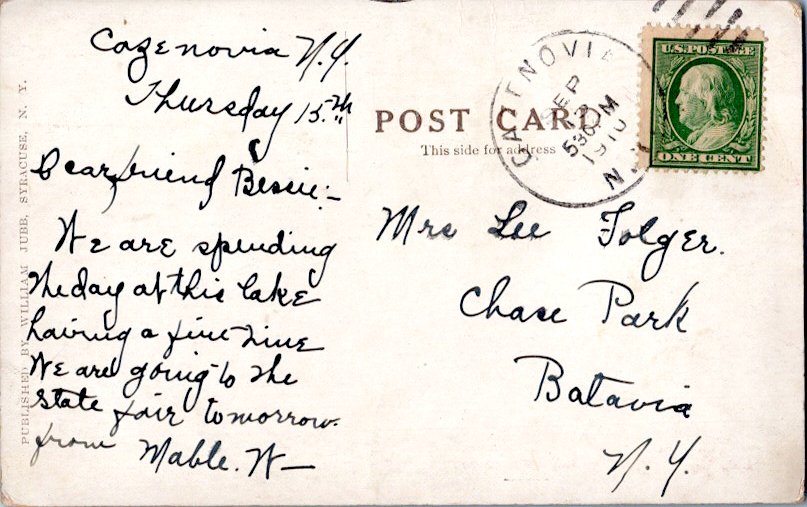 Cazenovia N.Y.
Thursday 15.th
Dear friend Bessie:-
We are spending
the day at this lake
having a fine time
We are going to the
state fair tomorrow.
from Mable. W-
PUBLISHED BY WILLIAM JUBB, SYRACUSE, N. Y.
POST CARD
This side for address
CAZENOVIA
SEP
530PM
1910
N.Y.
U.S. POSTAGE
ONE CENT
Mrs Lee Folger.
Chase Park
Batavia
N.Y.